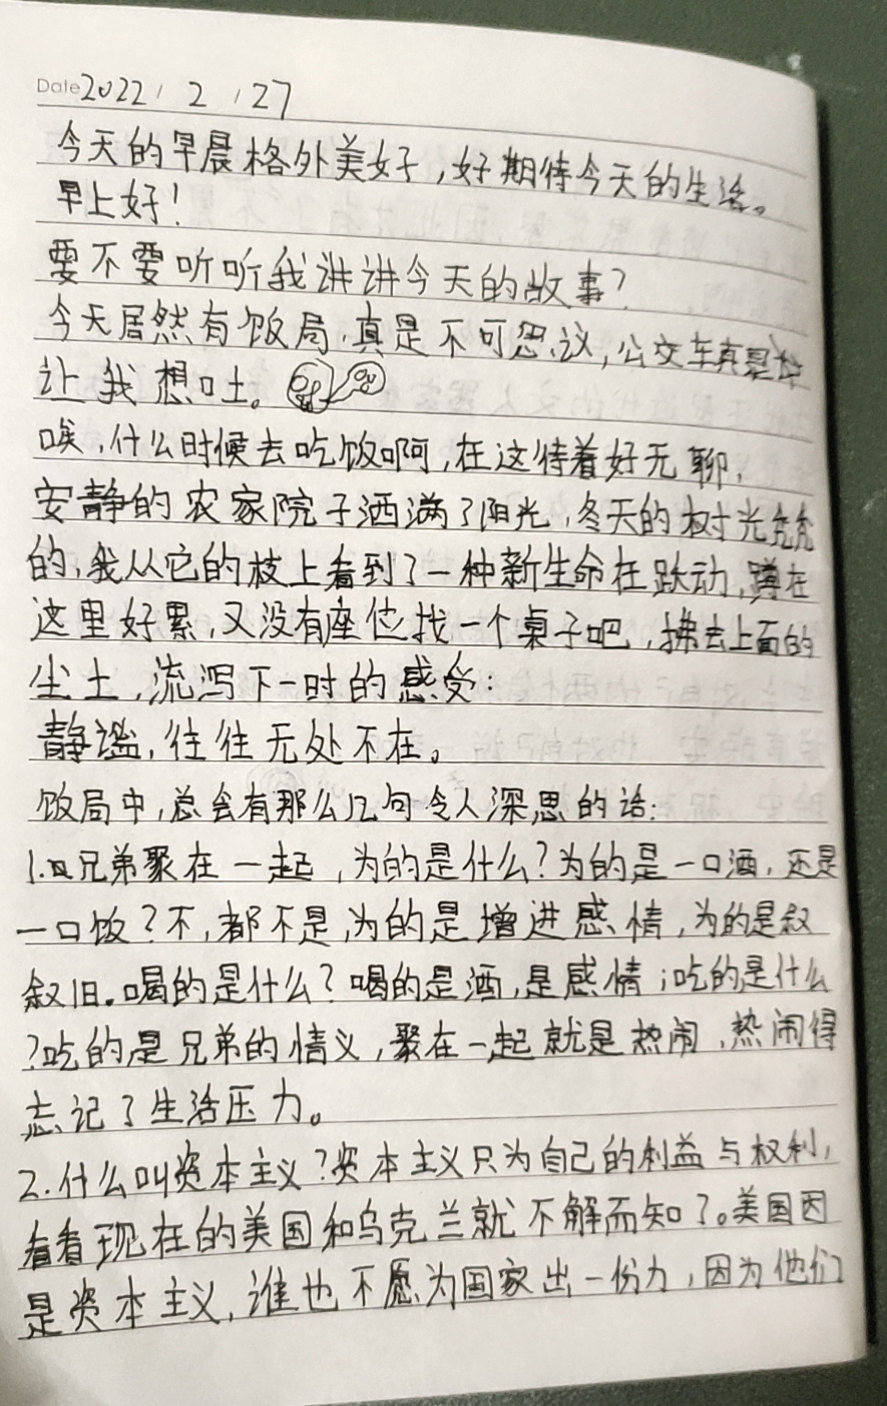 Date 2022 / 2 / 27
今天的早晨格外美好,好期待今天的生活。
早上好!
要不要听听我讲讲今天的故事?
今天居然有饭局,真是不可思议,公交车真是
让我想吐。
唉,什么时候去吃饭啊,在这待着好无聊,
安静的农家院子洒满了阳光,冬天的树光秃秃
的,我从它的枝上看到了一种新生命在跃动,蹲在
这里好累,又没有座位,找一个桌子吧,拂去上面的
尘土,流泻下一时的感受:
静谧,往往无处不在。
饭局中,总会有那么几句令人深思的话:
1.兄弟聚在一起,为的是什么?为的是一口酒,还是
一口饭?不,都不是,为的是增进感情,为的是叙
叙旧。喝的是什么?喝的是酒,是感情;吃的是什么
?吃的是兄弟的情义,聚在一起就是热闹,热闹得
忘记了生活压力。
2.什么叫资本主义?资本主义只为自己的利益与权利,
看看现在的美国和乌克兰就不解而知了。美国因
是资本主义,谁也不愿为国家出一份力,因为他们